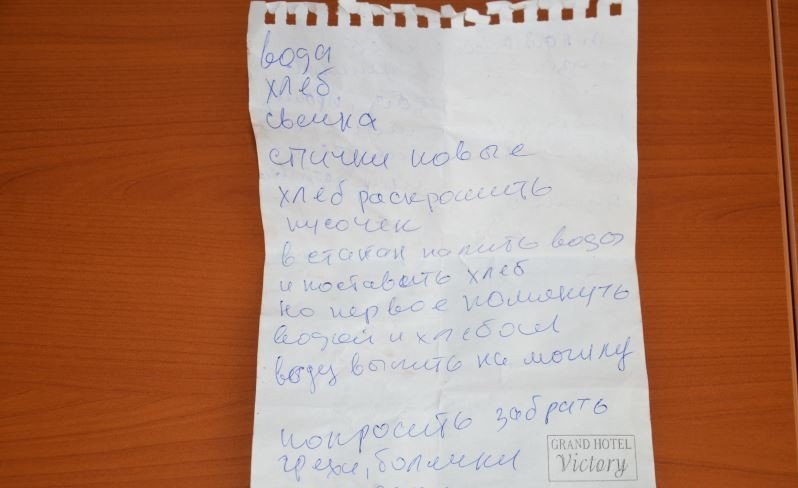 вода
хлеб
свечка
спички новые
хлеб раскрошить
кусочек
в стакан налить воды
и поставить хлеб
но первое помянуть
водой и хлебом
воду вылить на могилку
попросить забрать
грехи, болячки
GRAND HOTEL
Victory